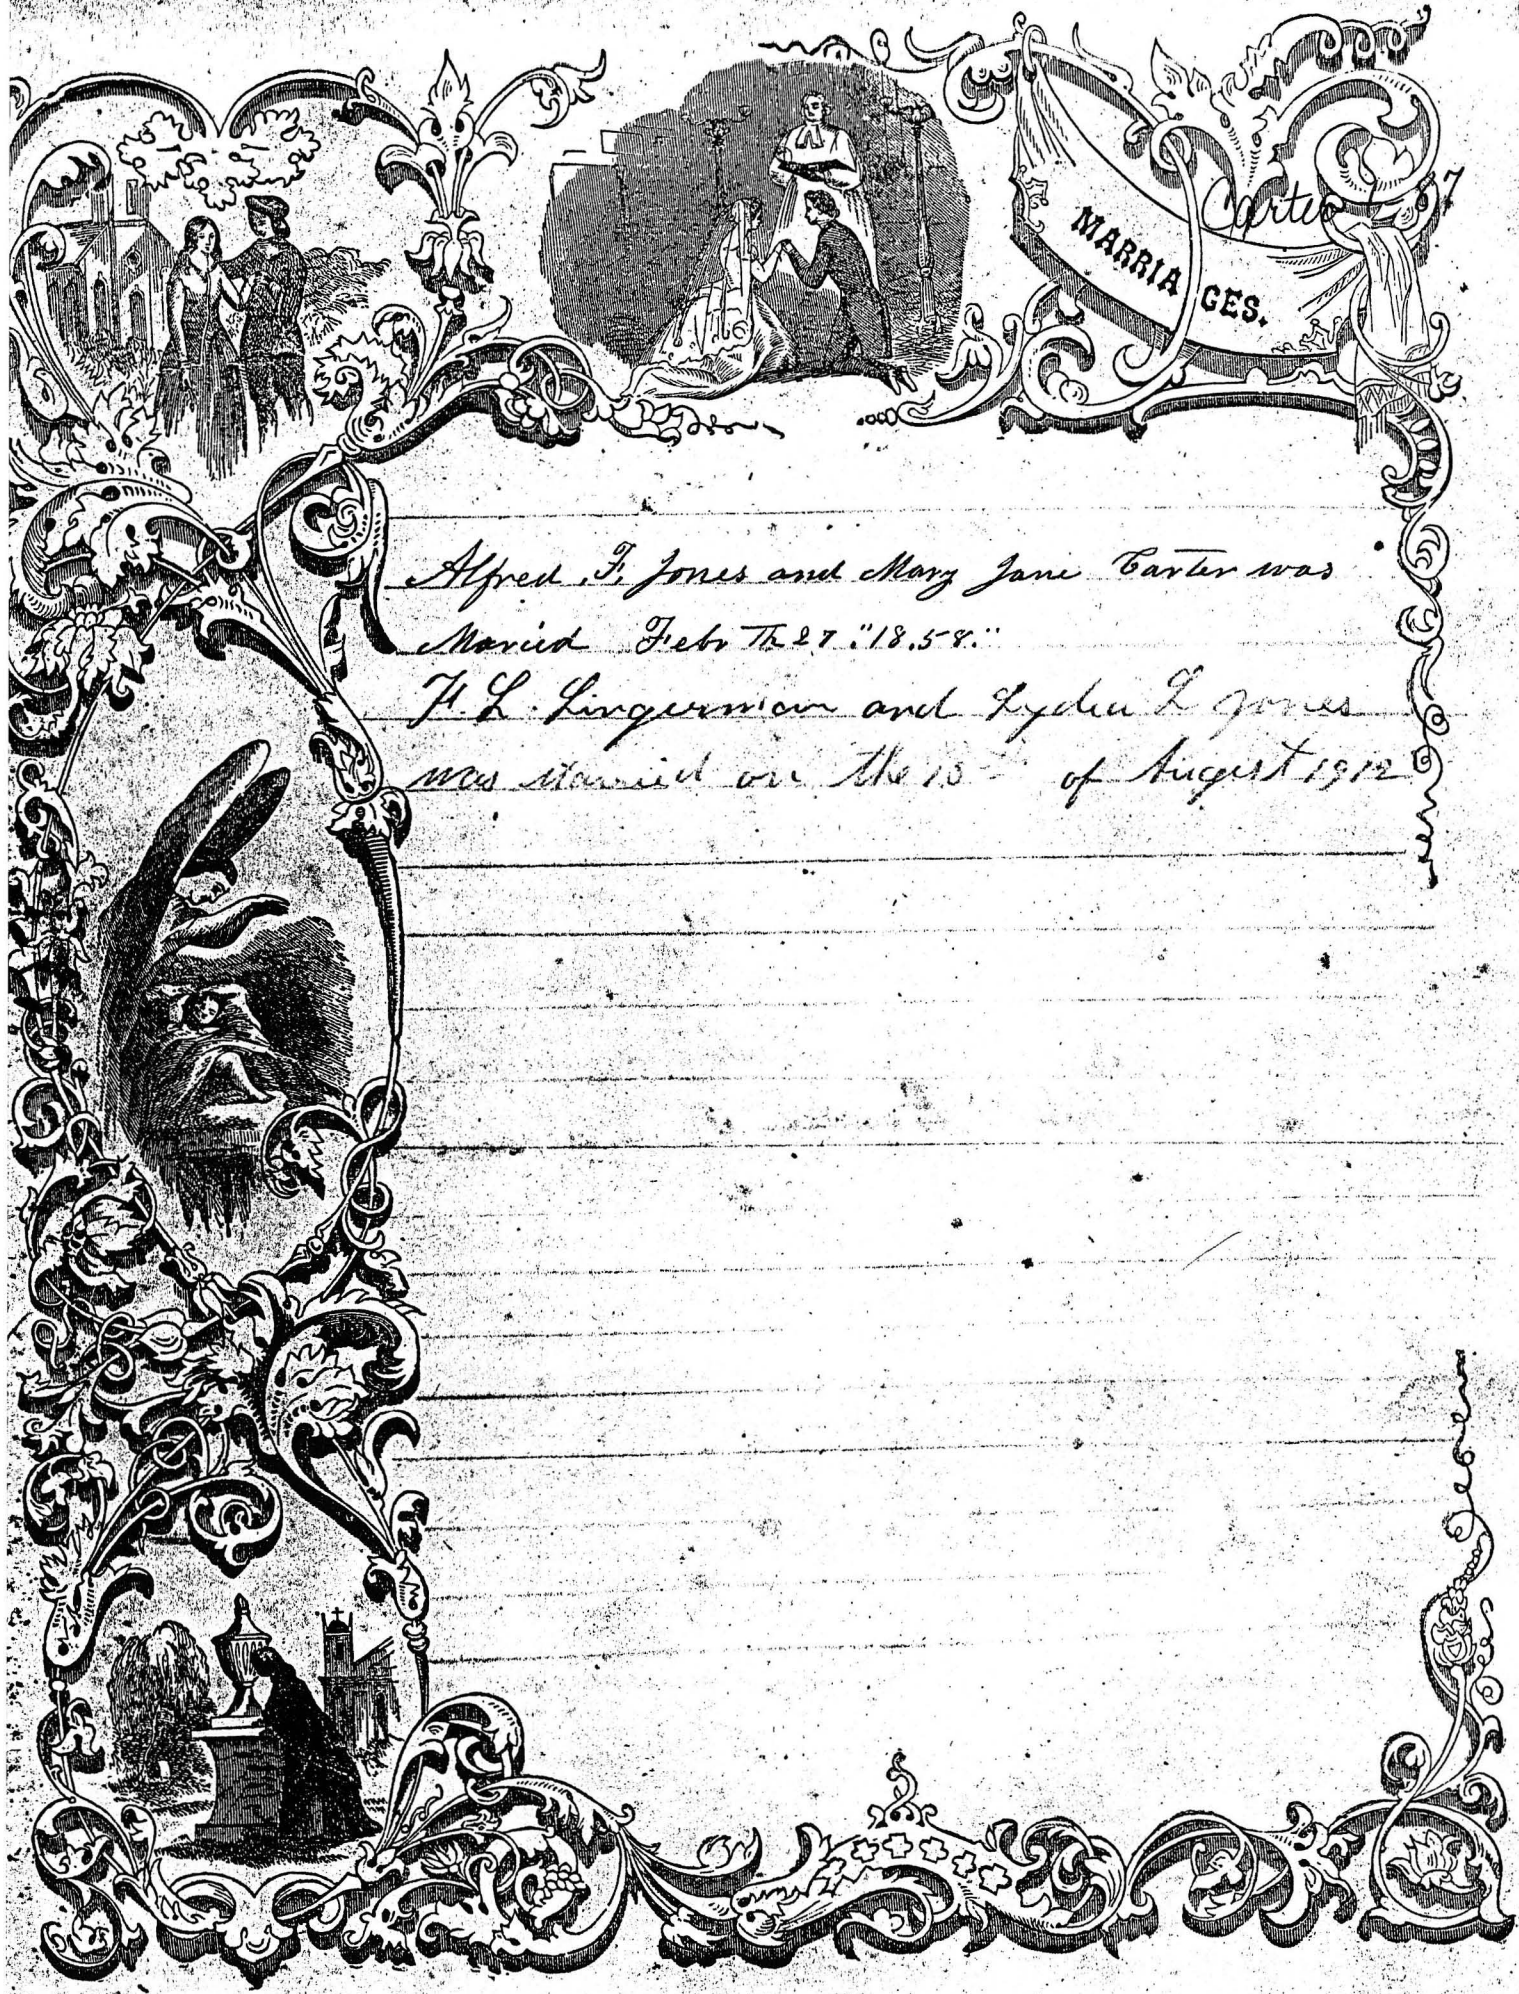 Carter 7
MARRIAGES.
Alfred F. Jones and Mary Jane Carter was
Maried Febr Th 27 "18.58."
H. L. Lingerman and Lydia L Jones
was Maried on the of August 1912